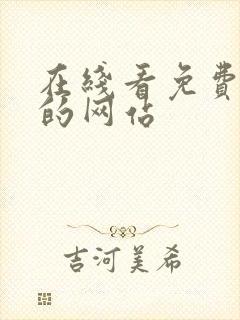 在綫看免費
的网站
吉河美希